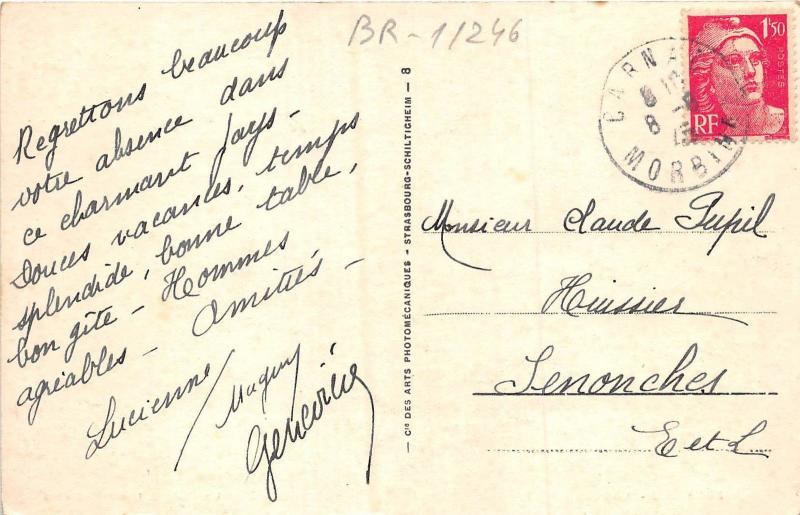 BR-11246
Regrettons beaucoup
votre absence dans
ce charmant pays -
Douces vacances, temps
splendide, bonne table,
bon gîte - Hommes
agréables - Amitiés -
Lucienne / Maguy
Geneviève
Cie DES ARTS PHOTOMÉCANIQUES - STRASBOURG-SCHILTIGHEIM - 8
1f50
POSTES
RF
CARNAC
8
MORBIHAN
Monsieur Claude Pupil
Huissier
Senonches
E et L